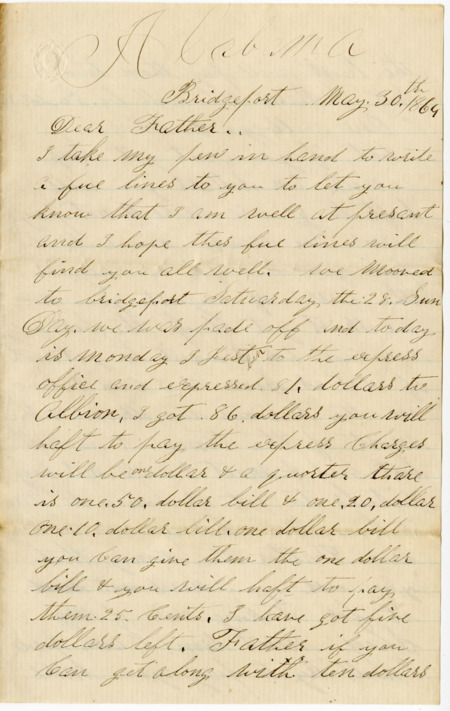 Alabama
Bridgeport May. 30.th 1864
Dear Father..
I take my pen in hand to write
a fue lines to you to let you
know that I am well at presant
and I hope thes fue lines will
find you all well. we mooved
to bridgeport Satuarday the 28. Sun
Day. we was pade off and to day
is monday I just to the express
office and expressed 81. dollars to
Albion, I got 86. dollars you will
haft to pay the express Charges
will be one dollar & a quorter thare
is one. 50. dollar bill & one. 20, dollar
one. 10. dollar bill. one dollar bill
you Can give them the one dollar
bill & you will haft to pay
them 25 Cents. I have got five
dollars left. Father if you
Can get along with ten dollars